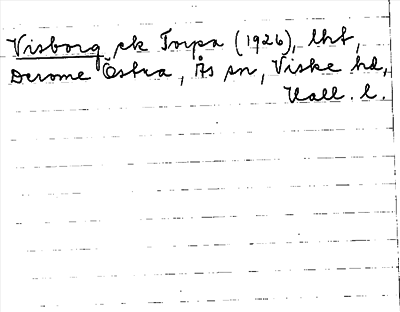 Visborg ek Torpa (1926), lht,
Derome Östra, Ås sn, Viske hd,
Hall. l.